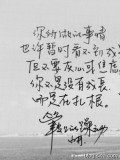 你所做的事情
也许暂时看不到成果
但不要灰心或焦虑
你不是没有成长
而是在扎根